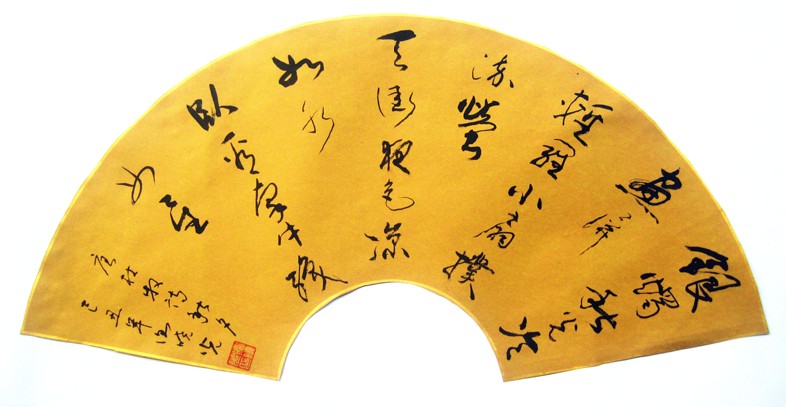 銀燭秋光冷
畫屏
輕羅小扇撲
流螢
天街夜色涼
如水
臥看牽牛織
女星
唐杜牧詩秋夕
己丑年